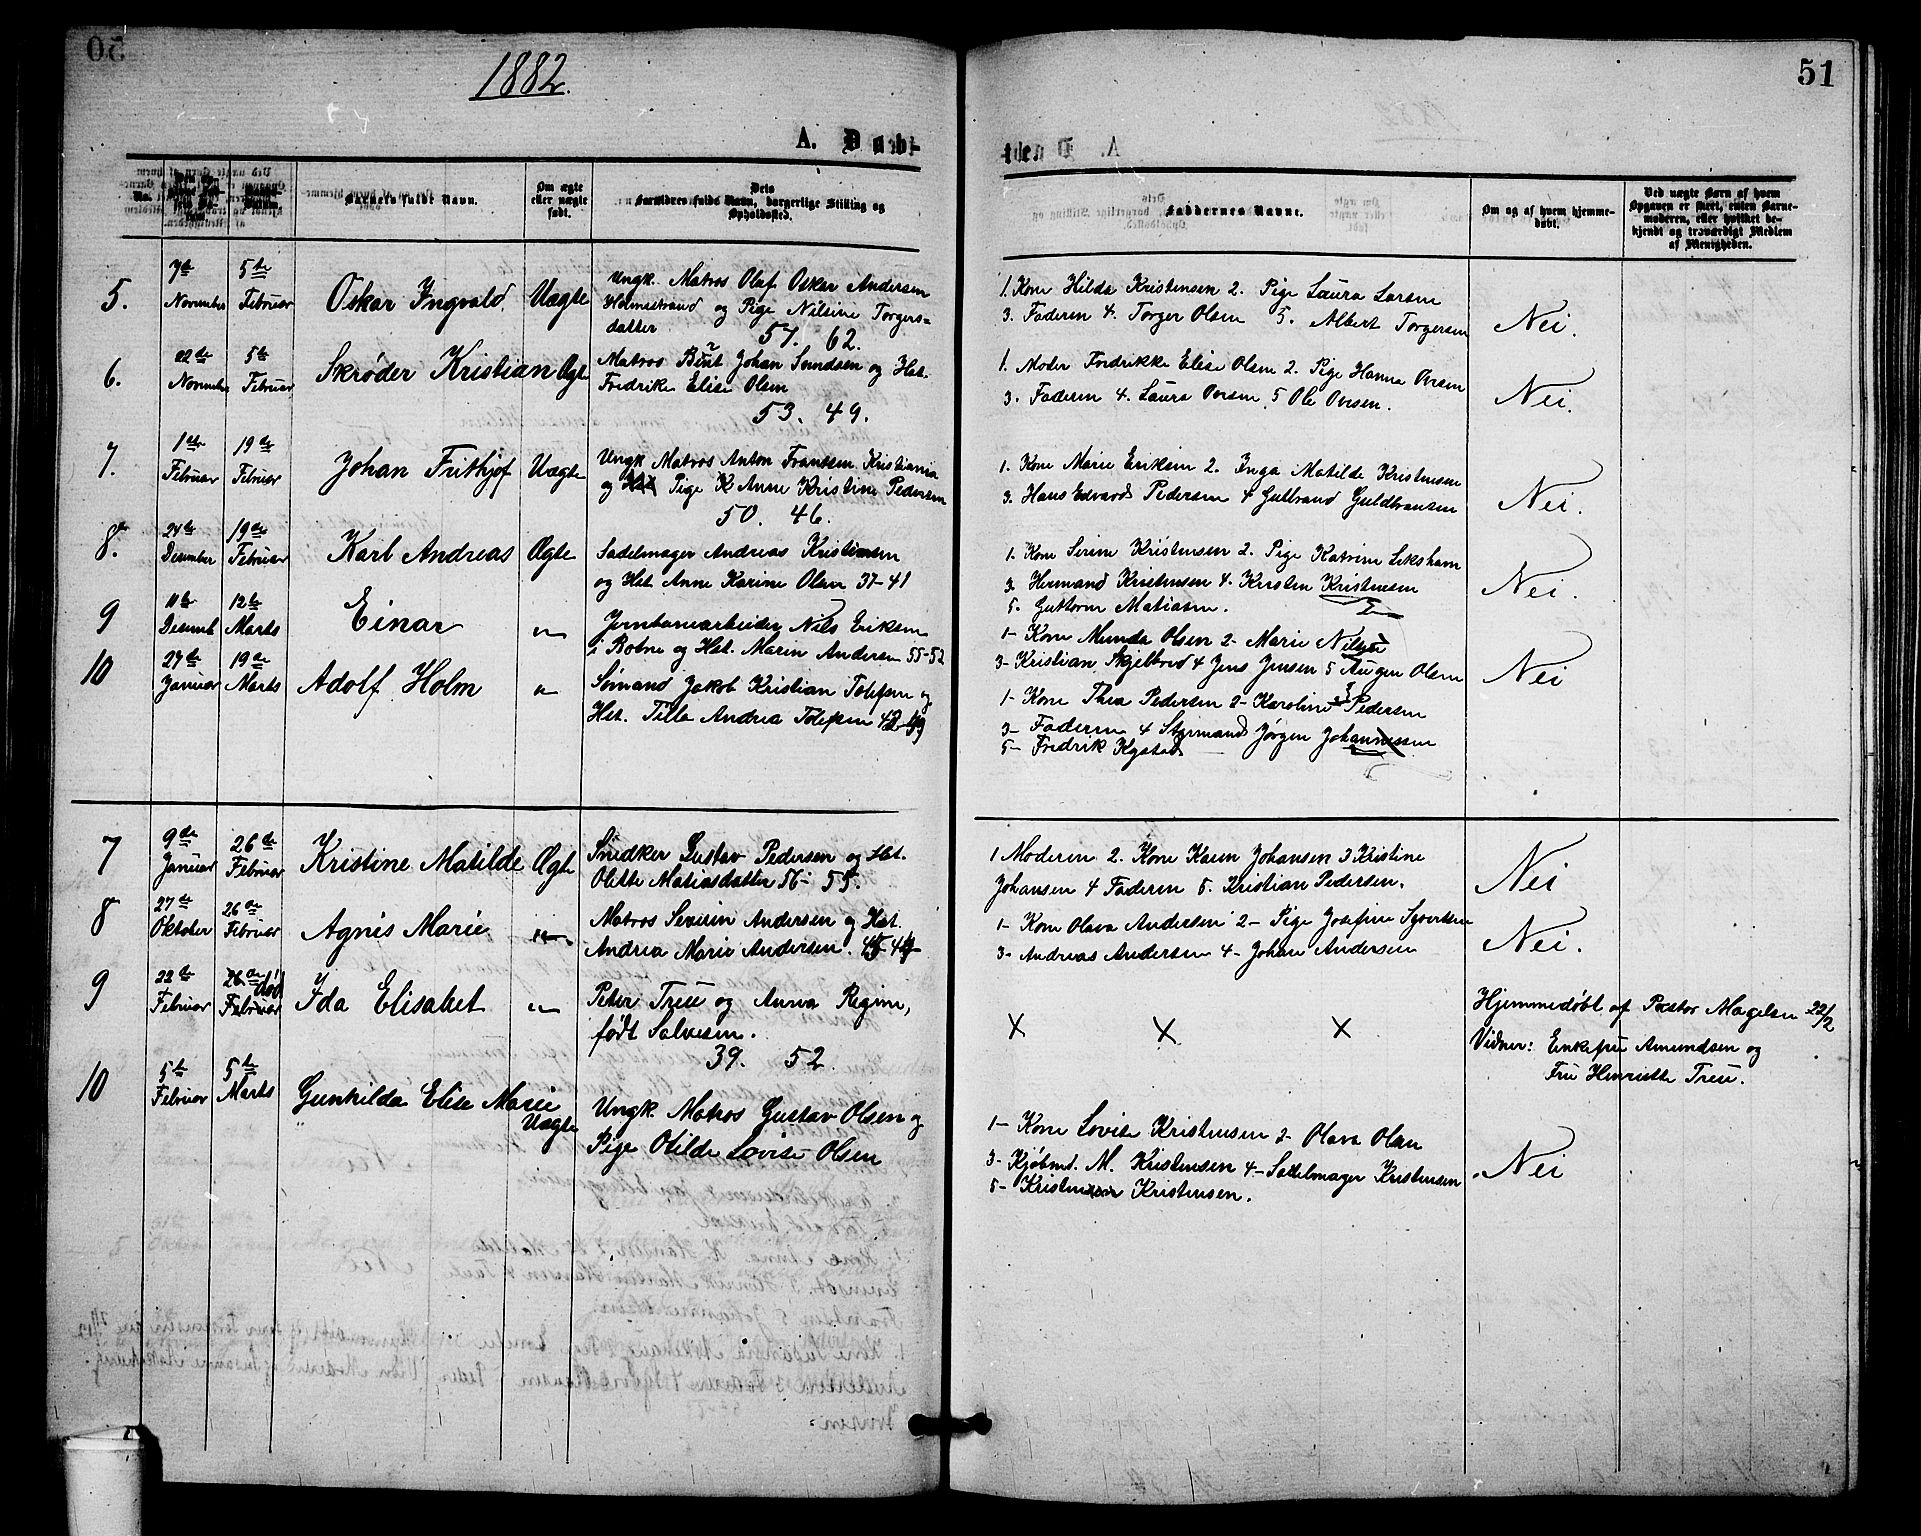 1882.
51
A. Døbte.
No.
Barnets fulde Navn.
Om ægte
eller uægte
født.
Forældres fulde Navn, borgerlige Stilling og
Opholdssted.
Faddernes Navne.
Om og af hvem hjemme-
døbt.
Ved uægte Barn af hvem
Opgaven er skeet, enten Barne-
moderen, eller hvilket be-
kjendt og troværdigt Medlem
af Menigheden.
5. 7de November 5te Februar Oskar Ingvald. Uægte
Ungk. Matros Olaf Oskar Andersen
Holmestrand og Pige Nilsine Torgers-
datter 57. 62.
1. Kone Hilda Kristensen 2. Pige Laura Larsen
3. Faderen 4. Torger Olsen 5. Albert Torgersen
Nei.
6. 22de November 5te Februar Skrøder Kristian Ægte
Matros Johan Svendsen og Hst.
Fredrik Elise Olsen
53. 49.
1. Moder Fredrikke Elise Olsen 2. Pige Hanna Oversen
3. Faderen 4. Laura Oversen 5 Ole Oversen.
Nei.
7. 1ste Februar 19de Februar Johan Frithjof Uægte
Ungk Matros Anton Frantsen Kristiania
og Pige K Anne Kristine Pedersen
50. 46.
1. Kone Marie Eriksen 2. Inga Matilde Kristensen
3. Hans Edvard Pedersen 4 Gulbrand Guldbransen
Nei.
8. 24de Desember 19de Februar Karl Andreas Ægte
Sadelmager Andreas Kristensen
og Hst. Anne Karine Olava 37-41
1. Kone Serine Kristensen 2. Pige Katrine
3. Hermand Kristensen 4. Kristen Kristensen
5. Guttorm Matiasen.
Nei.
9 11te Desemb 12te Marts Einar "
Jernbanearbeider Nils Eriksen
i Botne og Hst. Maren Andersen 55-52
1- Kone Munda Olsen 2- Marie Nilsen
3- Kristian Skjelbred 4 Jens Jensen 5 Augen Olsen
Nei
10 27de Januar 19de Marts Adolf Holm "
Sømand Jakob Kristian Tolefsen og
Hst. Tilla Andrea Tolefsen
1- Kone Thea Pedersen 2- Karoline Pedersen
3- Faderen 4 Styrmand Jørgen Johannessen
5- Fredrik
7 9de Januar 26de Februar Kristine Matilde Ægte
Snedker Gustav Pedersen og Hst.
Olette Matiasdatter 56- 55.
1 Moderen 2. Kone Karen Johansen 3 Kristine
Johansen 4 Faderen 5. Kristian Pedersen.
Nei
8 27de Oktober 26de Februar Agnis Marie "
Matros Severin Andersen og Hst.
Andrea Marie Andersen.
1- Kone Olava Andersen 2- Pige Josefine Syvertsen
3- Andreas Andersen 4- Johan Andersen
Nei.
9 22de Februar 26de Februar død Ida Elisabet "
Peter Treu og Anna Regine,
født Salvesen.
39. 52.
x x x
Hjemmedøbt af Pastor Magelsen 22/2
Vidner: Enkefru Amundsen og
Fru Henriette Treu.
10 5te Februar 5te Marts Gunhilda Elise Marie Uægte
Ungk. Matros Gustav Olsen og
Pige Otilde Lovise Olsen
1- Kone Lovise Kristensen 2- Olava Olsen
3- Kjøbmd. M. Kristensen 4- Sadelmager Kristensen
5- Kristensen.
Nei